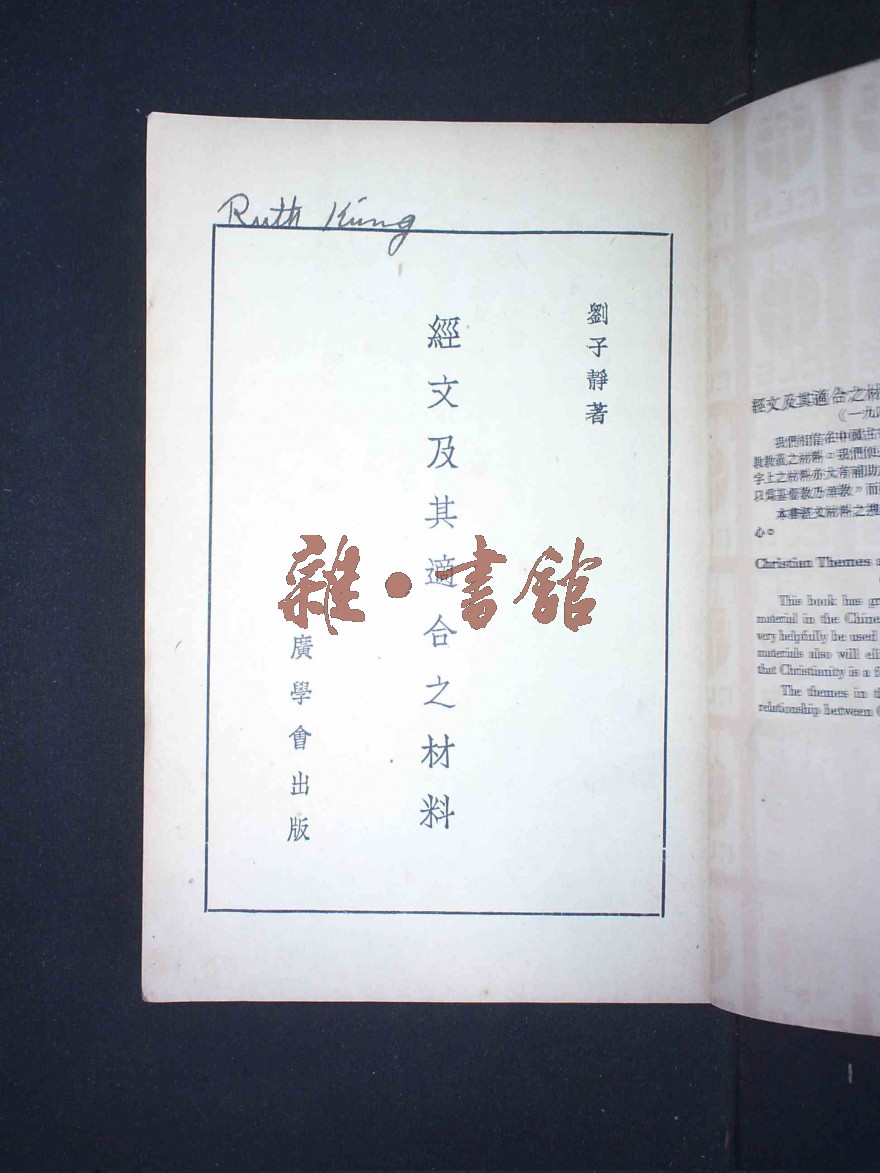 Ruth Kung
劉子靜著
經文及其適合之材料
廣學會出版
雜·書館
經文及其適合之材
(一九
我們相信在中國
教教義之材料。我們
字上之材料亦大有補助
以為基督教乃
本書經文材料之
心。
Christian Themes
This book has
material in the
very helpfully be used
materials also will
that Christianity is a
The themes in
relationship between